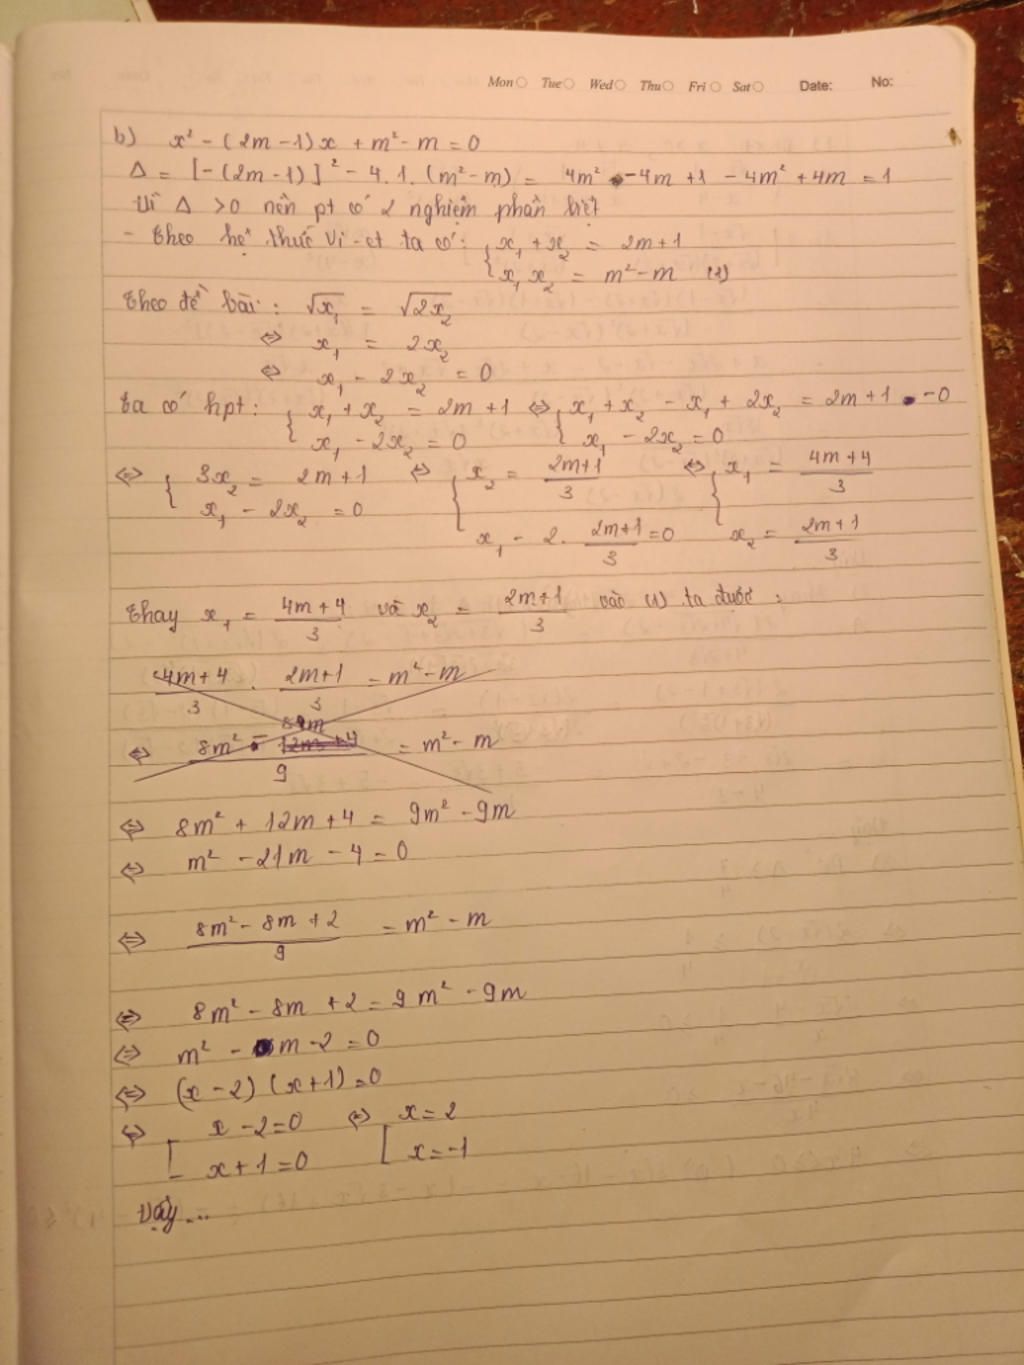 Mon Tue Wed Thu Fri Sat Date: No:
b) x² - (2m-1)x + m² - m = 0
Δ = [-(2m-1)]² - 4.1.(m² - m) = 4m² - 4m + 1 - 4m² + 4m = 1
Vì Δ > 0 nên pt có 2 nghiệm phân biệt
- Theo hệ thức Vi-et ta có: { x₁ + x₂ = 2m+1
x₁ x₂ = m² - m (1)
Theo đề bài: √x₁ = √2x₂
⇔ x₁ = 2x₂
⇔ x₁ - 2x₂ = 0
Ta có hpt: { x₁ + x₂ = 2m+1 ⇔ { x₁ + x₂ - x₁ + 2x₂ = 2m+1 - 0
x₁ - 2x₂ = 0 x₁ - 2x₂ = 0
⇔ { 3x₂ = 2m+1 ⇔ { x₂ = (2m+1)/3 ⇔ { x₁ = (4m+4)/3
x₁ - 2x₂ = 0 x₁ - 2. (2m+1)/3 = 0 x₂ = (2m+1)/3
Thay x₁ = (4m+4)/3 và x₂ = (2m+1)/3 vào (1) ta được:
(4m+4)/3 . (2m+1)/3 = m² - m
⇔ (8m² - 8m)/9 = m² - m
⇔ 8m² + 12m + 4 = 9m² - 9m
⇔ m² - 21m - 4 = 0
⇔ (8m² - 8m + 2)/9 = m² - m
⇔ 8m² - 8m + 2 = 9m² - 9m
⇔ m² - m - 2 = 0
⇔ (x - 2)(x+1) = 0
⇔ [ x - 2 = 0 ⇔ [ x = 2
x + 1 = 0 x = -1
Vậy...